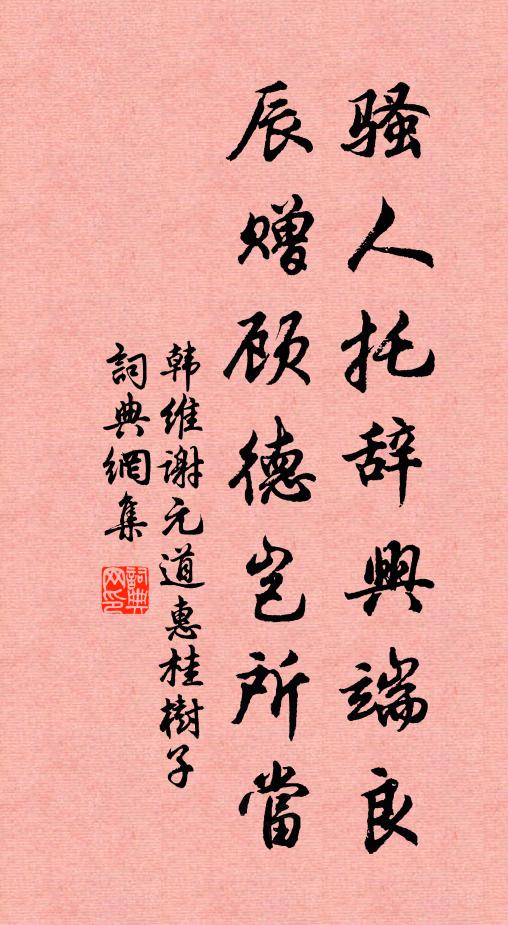 骚人托辞興端良
辰赠顾德岂所當
韩维谢元道惠桂樹子
詞典網集
詞典网印